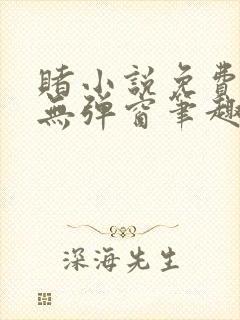 賭小說免費
無彈窗筆趣
深海先生